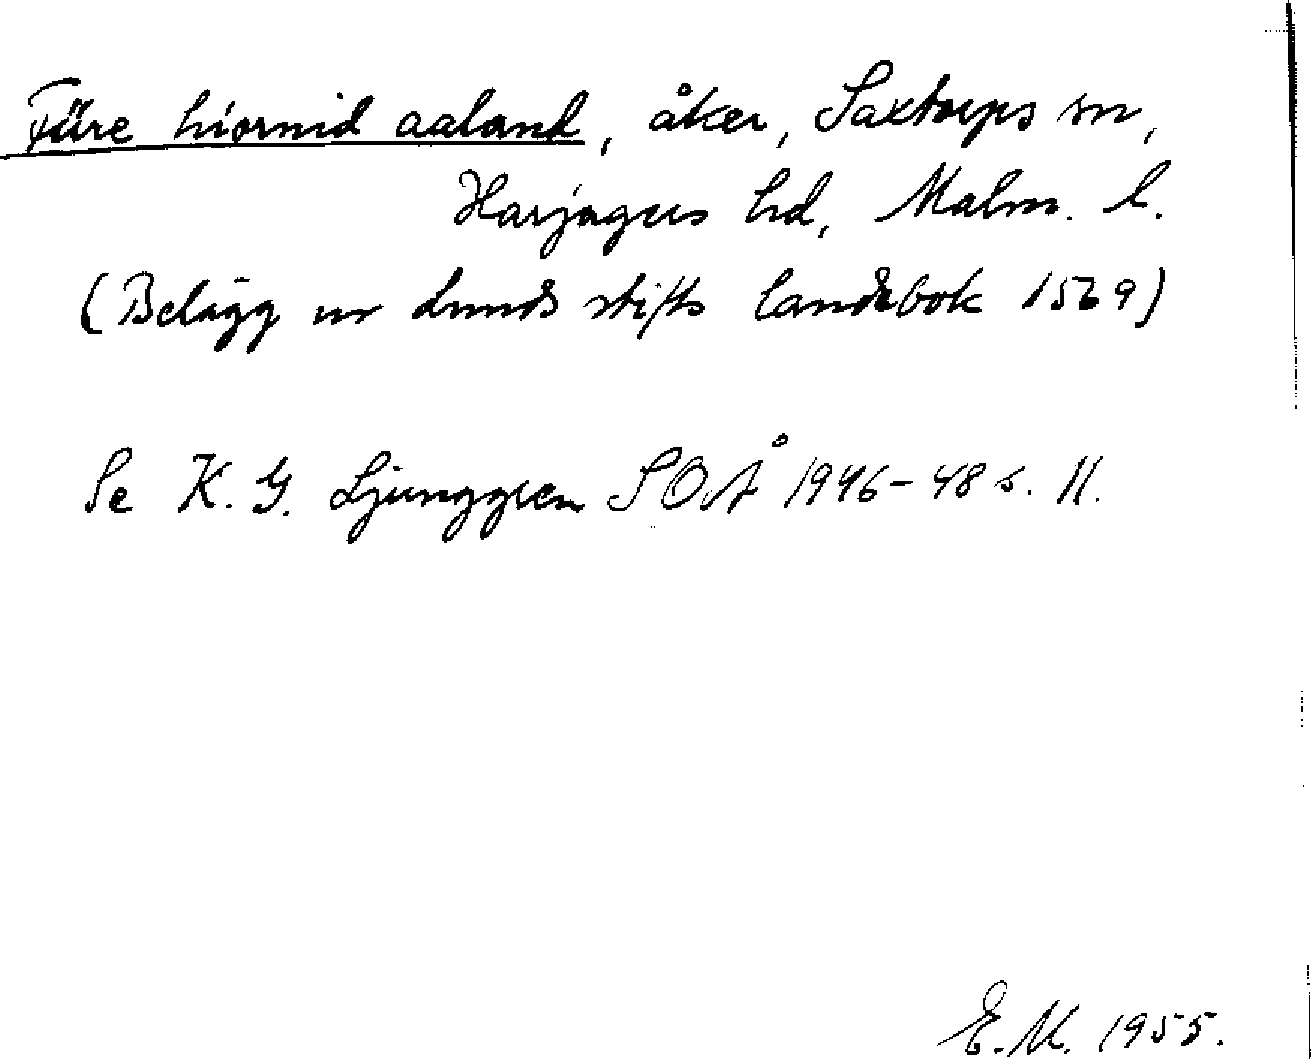 Füre hiornid aaland, åker, Saxtorps sn,
Harjagers hd, Malm. l.
(Belägg ur Lunds stifts landebok 1569)
Se K. G. Ljunggren SOÅ 1946-48 s. 11.
E.M. 1955.